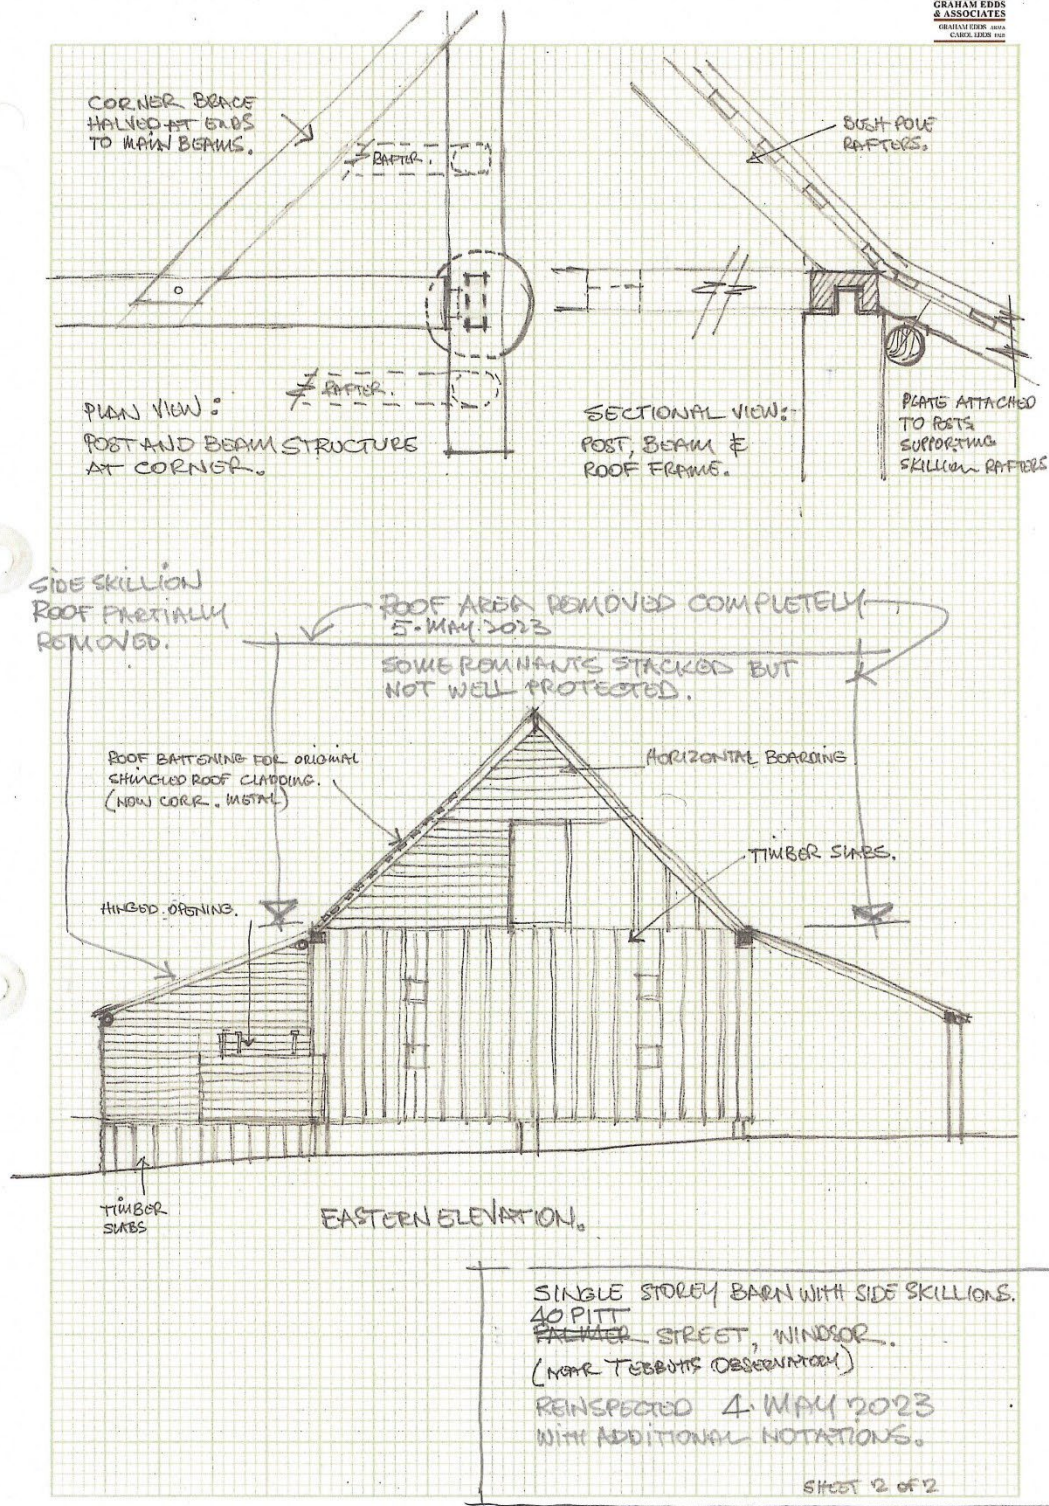 GRAHAM EDDS
& ASSOCIATES
GRAHAM EDDS
CAROL EDDS
CORNER BRACE
HALVED AT ENDS
TO MAIN BEAMS.
RAFTER.
BUSH POLE
RAFTERS.
RAFTER.
PLAN VIEW:
POST AND BEAM STRUCTURE
AT CORNER.
SECTIONAL VIEW:
POST, BEAM &
ROOF FRAME.
PLATE ATTACHED
TO POSTS
SUPPORTING
SKILLION RAFTERS
SIDE SKILLION
ROOF PARTIALLY
REMOVED.
ROOF AREA REMOVED COMPLETELY
5·MAY·2023
SOME REMNANTS STACKED BUT
NOT WELL PROTECTED.
ROOF BATTENING FOR ORIGINAL
SHINGLED ROOF CLADDING.
(NOW CORR. METAL)
HORIZONTAL BOARDING
TIMBER SLABS.
HINGED OPENING.
TIMBER
SLABS
EASTERN ELEVATION.
SINGLE STOREY BARN WITH SIDE SKILLIONS.
40 PITT
PALMER STREET, WINDSOR.
(NEAR TEBBUTTS OBSERVATORY)
REINSPECTED 4·MAY 2023
WITH ADDITIONAL NOTATIONS.
SHEET 2 OF 2